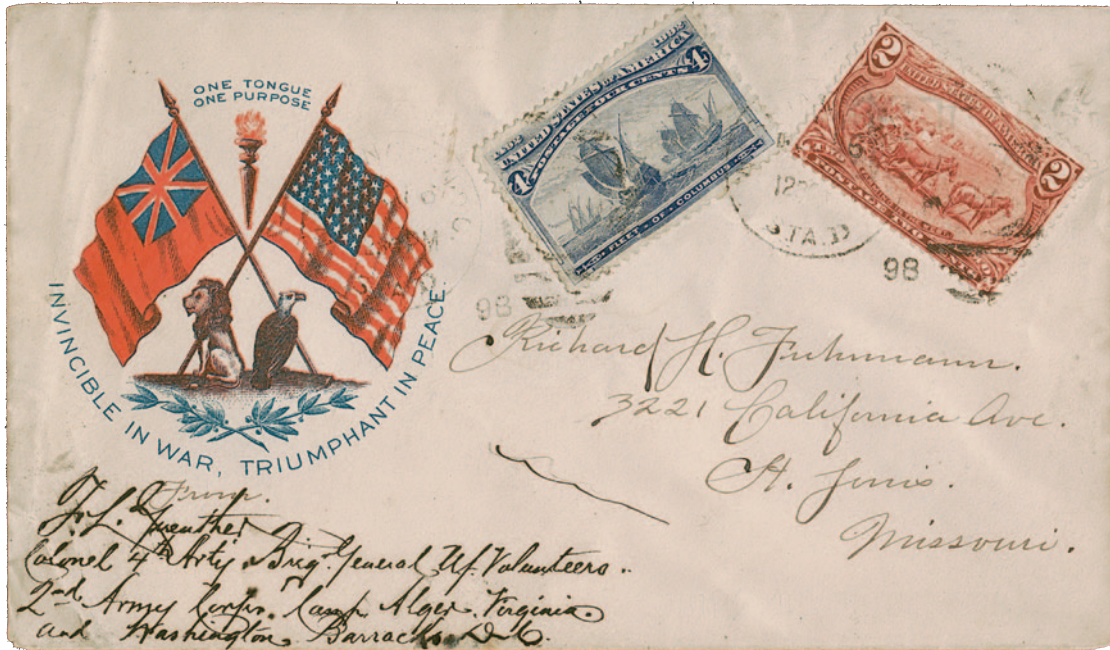 ONE TONGUE
ONE PURPOSE
INVINCIBLE IN WAR, TRIUMPHANT IN PEACE.
1492 1892
UNITED STATES OF AMERICA
4 POSTAGE FOUR CENTS 4
FLEET OF COLUMBUS
2
UNITED STATES OF AMERICA
2
POSTAGE
12
STA. D
98
98
Richard H. Fuhrmann.
3221 California Ave.
St. Louis.
Missouri.
From.
F. L. Guenther
Colonel 4th Arty. Brig. General U.S. Volunteers.
2nd Army Corps. Camp Alger. Virginia.
and Washington Barracks D.C.